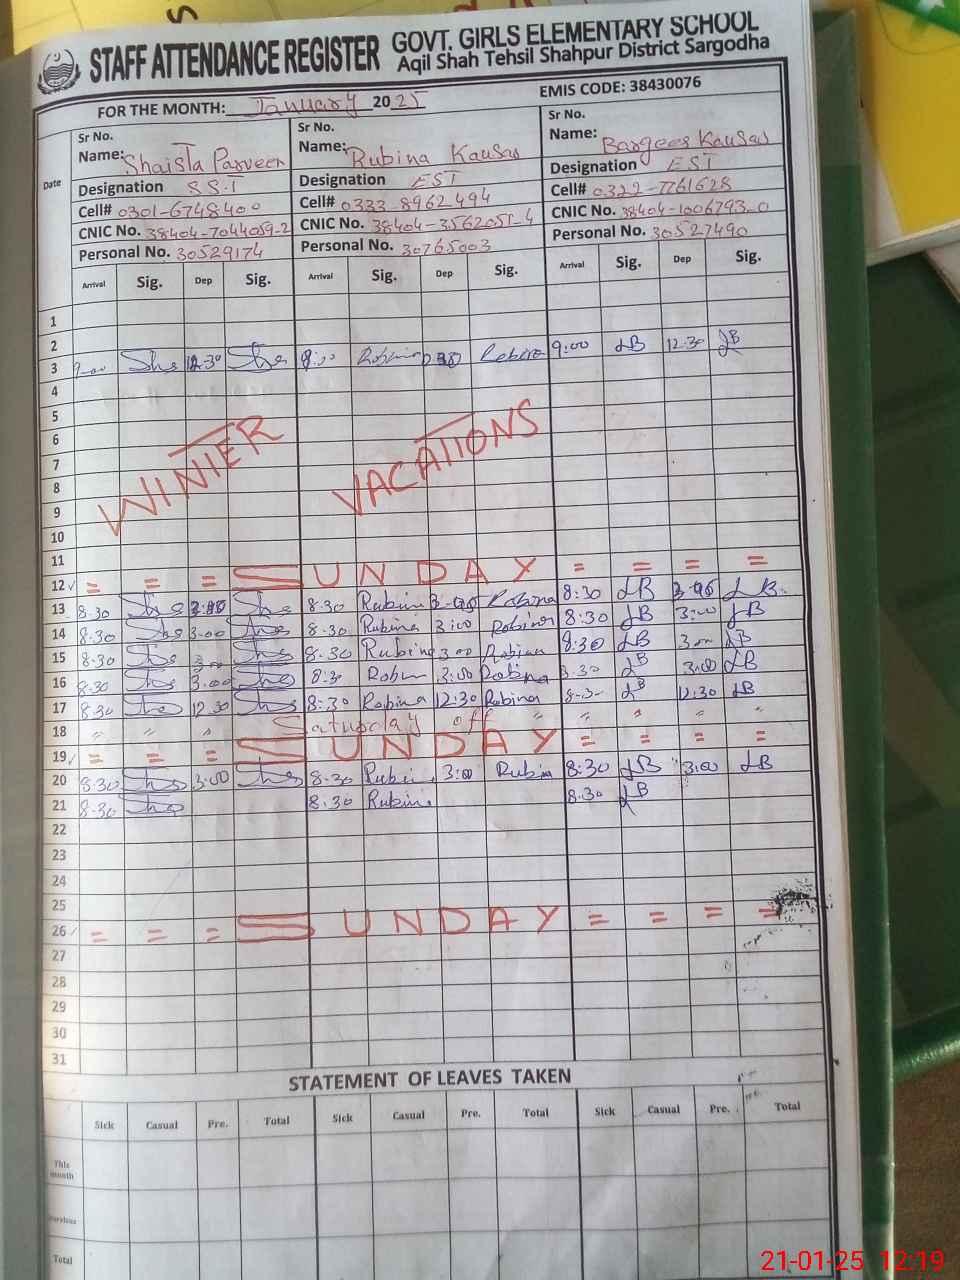 STAFF ATTENDANCE REGISTER GOVT. GIRLS ELEMENTARY SCHOOL
Aqil Shah Tehsil Shahpur District Sargodha
FOR THE MONTH: January 2025 EMIS CODE: 38430076
Date Sr No. Sr No. Sr No.
Name: Shaista Parveen Name: Rubina Kausar Name: Bargees Kausar
Designation S.S.T Designation EST Designation EST
Cell# 0301-6748400 Cell# 0333-8962494 Cell# 0322-7761628
CNIC No. 38404-7044059-2 CNIC No. 38404-3562051-4 CNIC No. 38404-1006793-0
Personal No. 30529174 Personal No. 30765003 Personal No. 30527490
Arrival Sig. Dep Sig. Arrival Sig. Dep Sig. Arrival Sig. Dep Sig.
1
2
3 9:00 Sha 12:30 Sha Robina Robina 9:00 LB 12:30 LB
4
5
6
WINTER VACATIONS
7
8
9
10
11
12 = = = SUNDAY = = = =
13 8:30 Sha Sha 8:30 Rubina Robina 8:30 LB LB
14 8:30 Sha 3:00 Sha 8:30 Rubina 3:00 Robina 8:30 LB 3:00 LB
15 8:30 Sha 3:00 Sha 8:30 Rubina 3:00 8:30 LB 3:00 LB
16 8:30 Sha 3:00 Sha 8:30 3:00 Robina 8:30 LB 3:00 LB
17 8:30 Sha 12:30 Sha 8:30 Robina 12:30 Robina 8:30 LB 12:30 LB
18 " " " Saturday off " " " " "
19 = = = SUNDAY = = = =
20 8:30 Sha 3:00 Sha 8:30 Rubina 3:00 Rubina 8:30 LB 3:00 LB
21 8:30 Sha 8:30 Rubina 8:30 LB
22
23
24
25
26 = = = SUNDAY = = = =
27
28
29
30
31
STATEMENT OF LEAVES TAKEN
Sick Casual Pre. Total Sick Casual Pre. Total Sick Casual Pre. Total
This month
Previous
Total
21-01-25 12:19